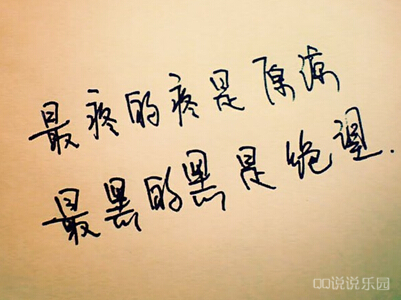 最疼的疼是原谅
最黑的黑是绝望.
QQ说说乐园